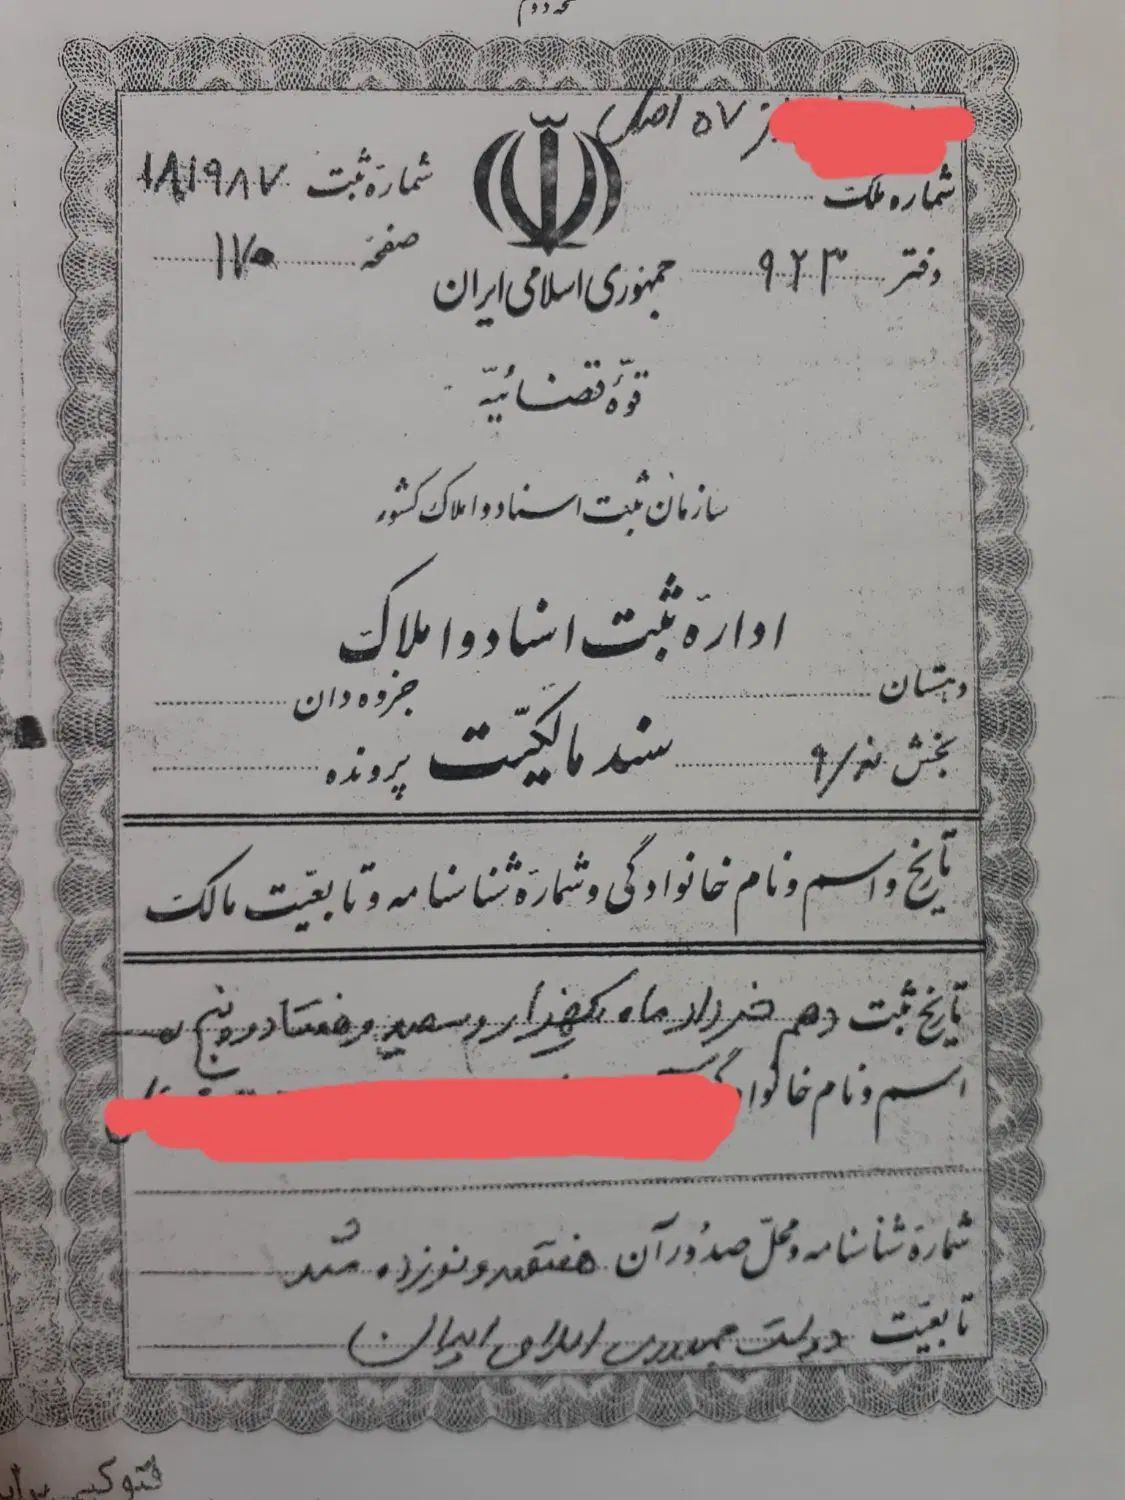 صفحه دوم
از ۵۷ اصلی
شماره ملک
شماره ثبت ۱۸۱۹۸۷
دفتر ۹۲۳
صفحه ۱۷۰
جمهوری اسلامی ایران
قوّهٔ قضائیّه
سازمان ثبت اسناد و املاک کشور
اداره ثبت اسناد و املاک
دهستان
جزوه دان
بخش نه/۹
سند مالکیّت
پرونده
تاریخ و اسم و نام خانوادگی و شماره شناسنامه و تابعیّت مالک
تاریخ ثبت دهم خرداد ماه یکهزار و سیصد و هفتاد و پنج
اسم و نام خانوادگی
شماره شناسنامه و محلّ صدور آن هفتصد و نوزده مشهد
تابعیّت دولت جمهوری اسلامی ایران
فتوکپی برابر